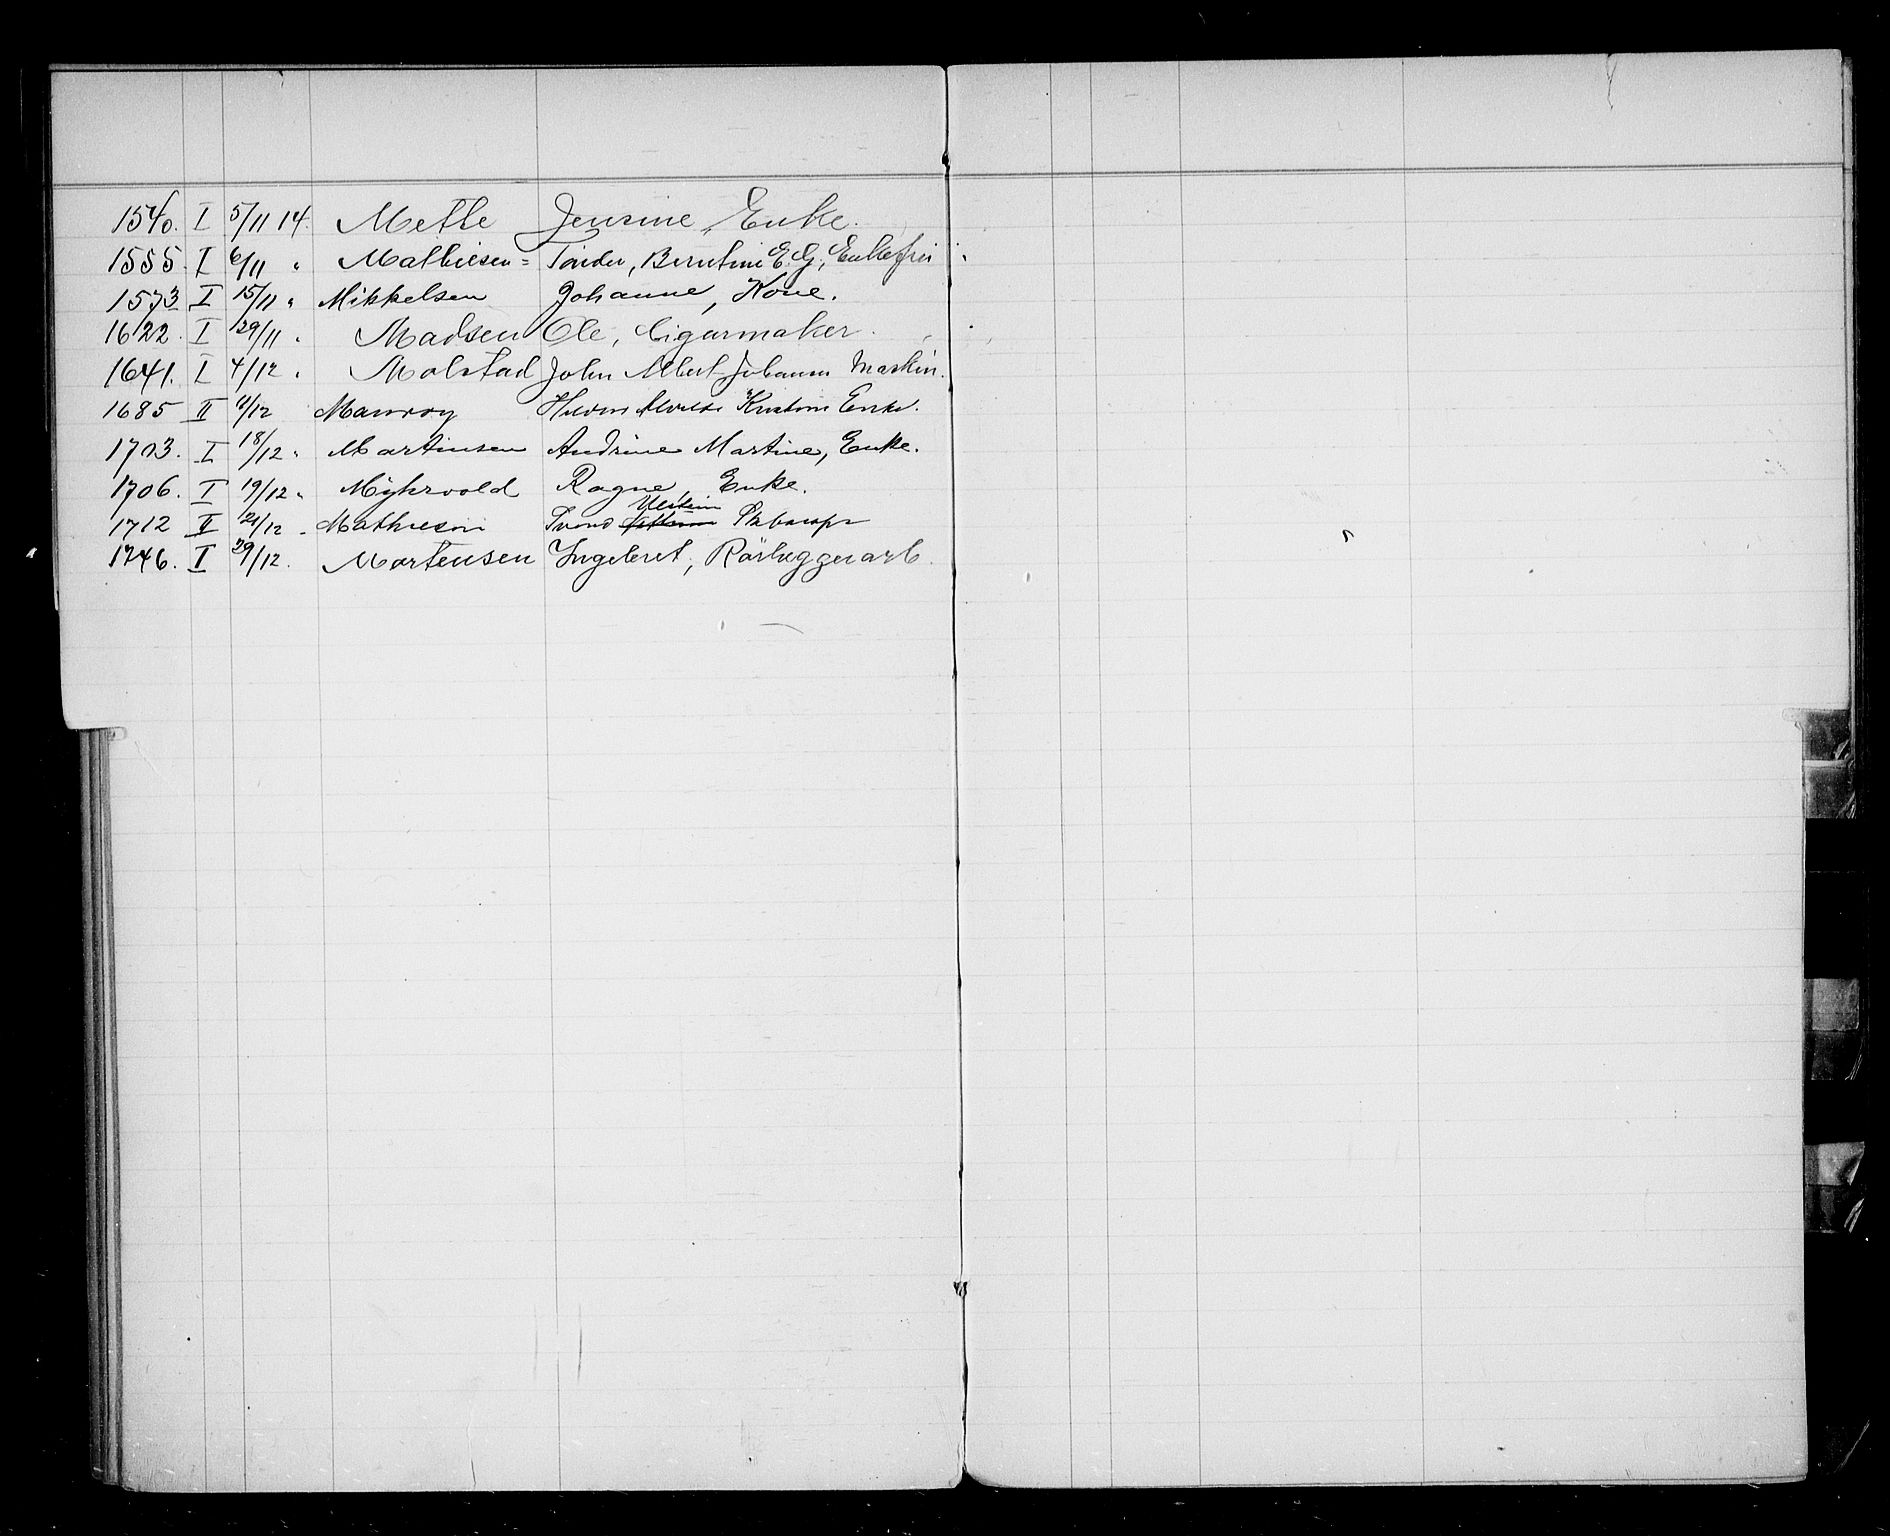 1540. I 5/11 14. Mette Jensine, Enke.
1555. I 6/11 " Mathiesen = Tønder, Berntine E. G., Enkefru
1573 I 15/11 " Mikkelsen Johanne, Kone.
1622. I 29/11 " Madsen Ole, Cigarmaker.
1641. I 4/12 " Molstad John Albert Johansen Maskin.
1685 II 11/12 Hilda Kristine Enke.
1703. I 18/12 " Martinsen Andrine Martine, Enke.
1706. I 19/12 " Myhrvold Ragne, Enke.
1712 II 21/12 - Mathiesen Trond
1746. I 29/12. Mortensen Ingebret, Rørlæggerarb.